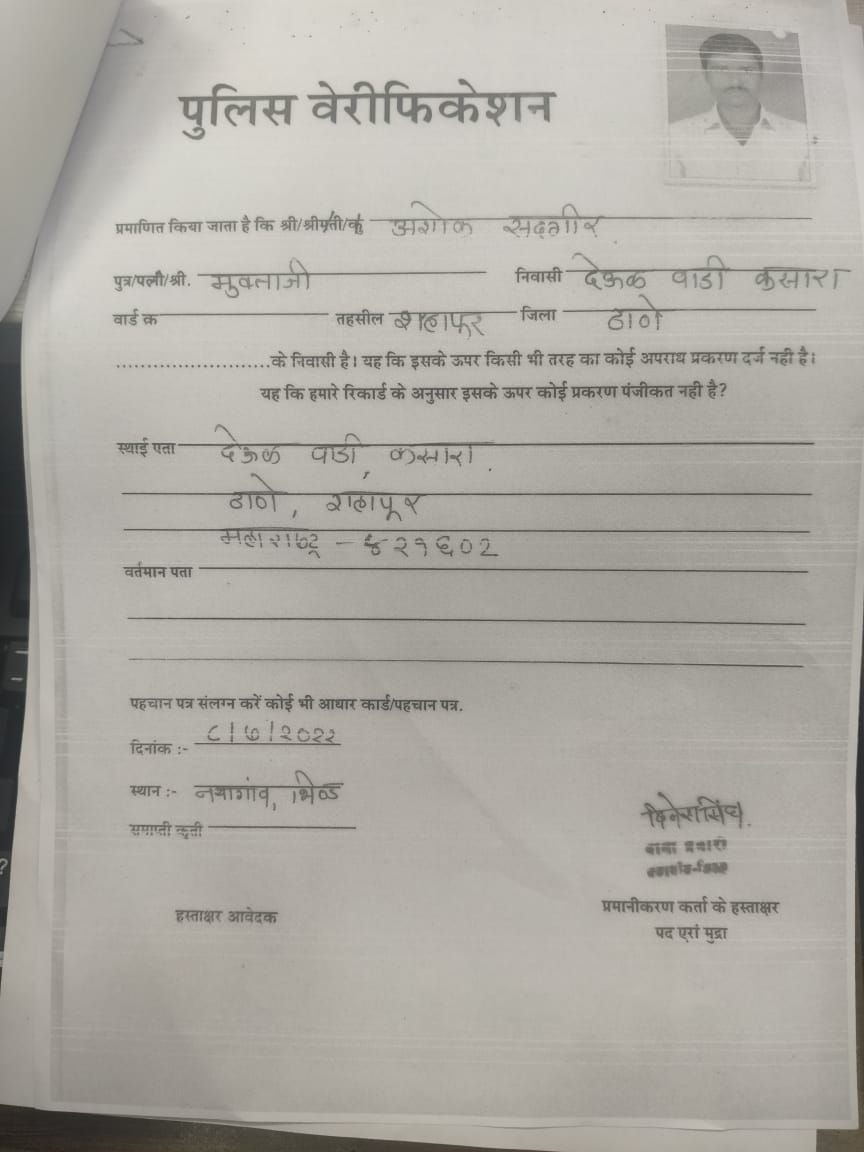 पुलिस वेरीफिकेशन
प्रमाणित किया जाता है कि श्री/श्रीमती/कु अशोक सदगीर
पुत्र/पत्नी/श्री. मुक्ताजी निवासी देऊळ वाडी कसारा
वार्ड क्र तहसील शहापुर जिला ठाणे
........................के निवासी है। यह कि इसके ऊपर किसी भी तरह का कोई अपराध प्रकरण दर्ज नही है।
यह कि हमारे रिकार्ड के अनुसार इसके ऊपर कोई प्रकरण पंजीकत नही है?
स्थाई पता देऊळ वाडी, कसारा.
ठाणे, शहापूर
महाराष्ट्र - ४२१६०२
वर्तमान पता
पहचान पत्र संलग्न करें कोई भी आधार कार्ड/पहचान पत्र.
दिनांक :- ८/७/२०२२
स्थान :- नयागांव, भिण्ड
समाप्ती कृती
थाना प्रभारी
हस्ताक्षर आवेदक
प्रमानीकरण कर्ता के हस्ताक्षर
पद एरां मुद्रा